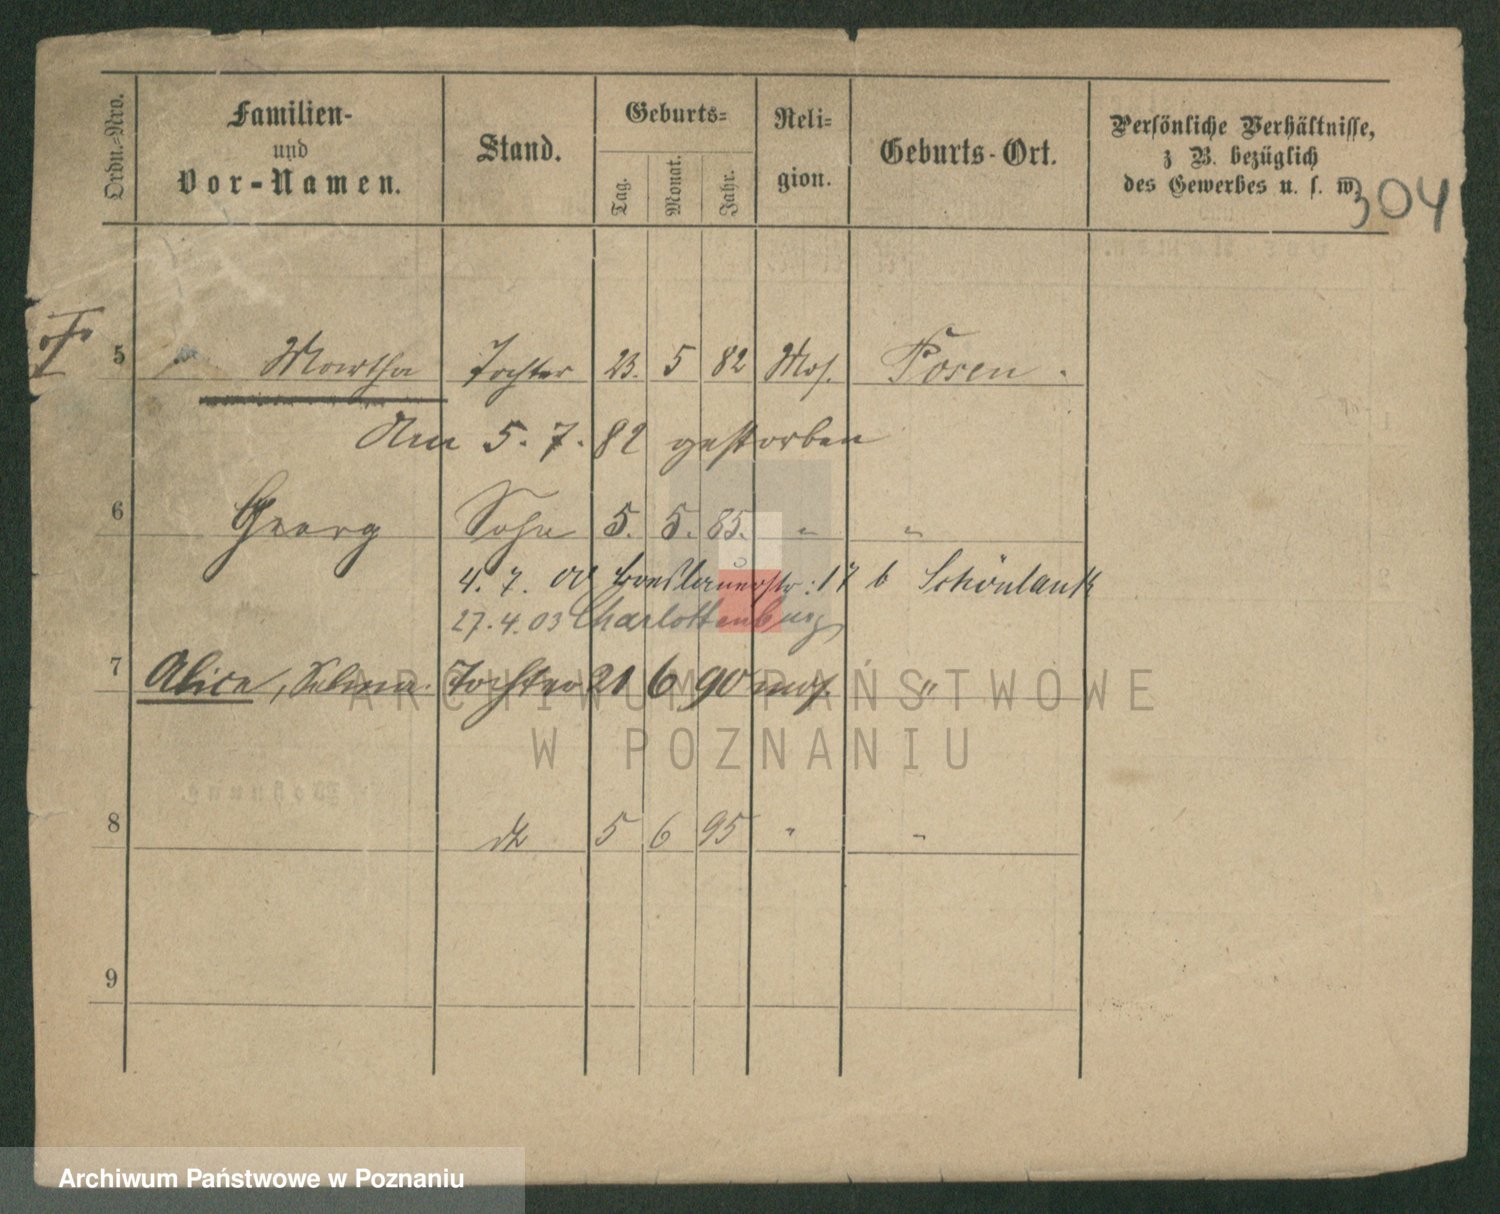 Ordn.-Nro.
Familien-
und
Vor-Namen.
Stand.
Geburts=
Tag.
Monat.
Jahr.
Reli=
gion.
Geburts-Ort.
Persönliche Verhältnisse,
z B. bezüglich
des Gewerbes u. s. w.
304
5 Martha Tochter 23. 5 82 Mos. Posen.
Am 5. 7. 82 gestorben
6 Georg Sohn 5. 5. 85. " "
4. 7. 00 Breslauerstr: 17 b Schönlank
27.4.03 Charlottenburg
7 Alice, Selma. Tochter 21 6 90 mos. "
ARCHIWUM PAŃSTWOWE
W POZNANIU
8 5 6 95 " "
9
Archiwum Państwowe w Poznaniu